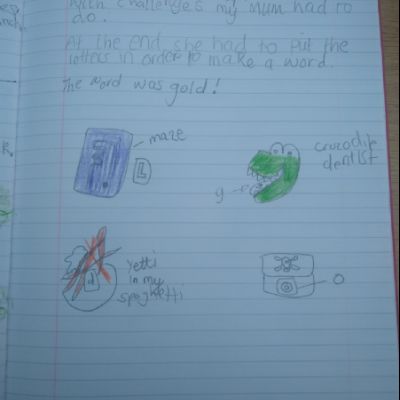 with challenges my mum had to
do.
At the end she had to put the
letters in order to make a word.
The word was gold!
maze
L
crocodile
dentist
g
Yetti
in my
spaghetti
d
O